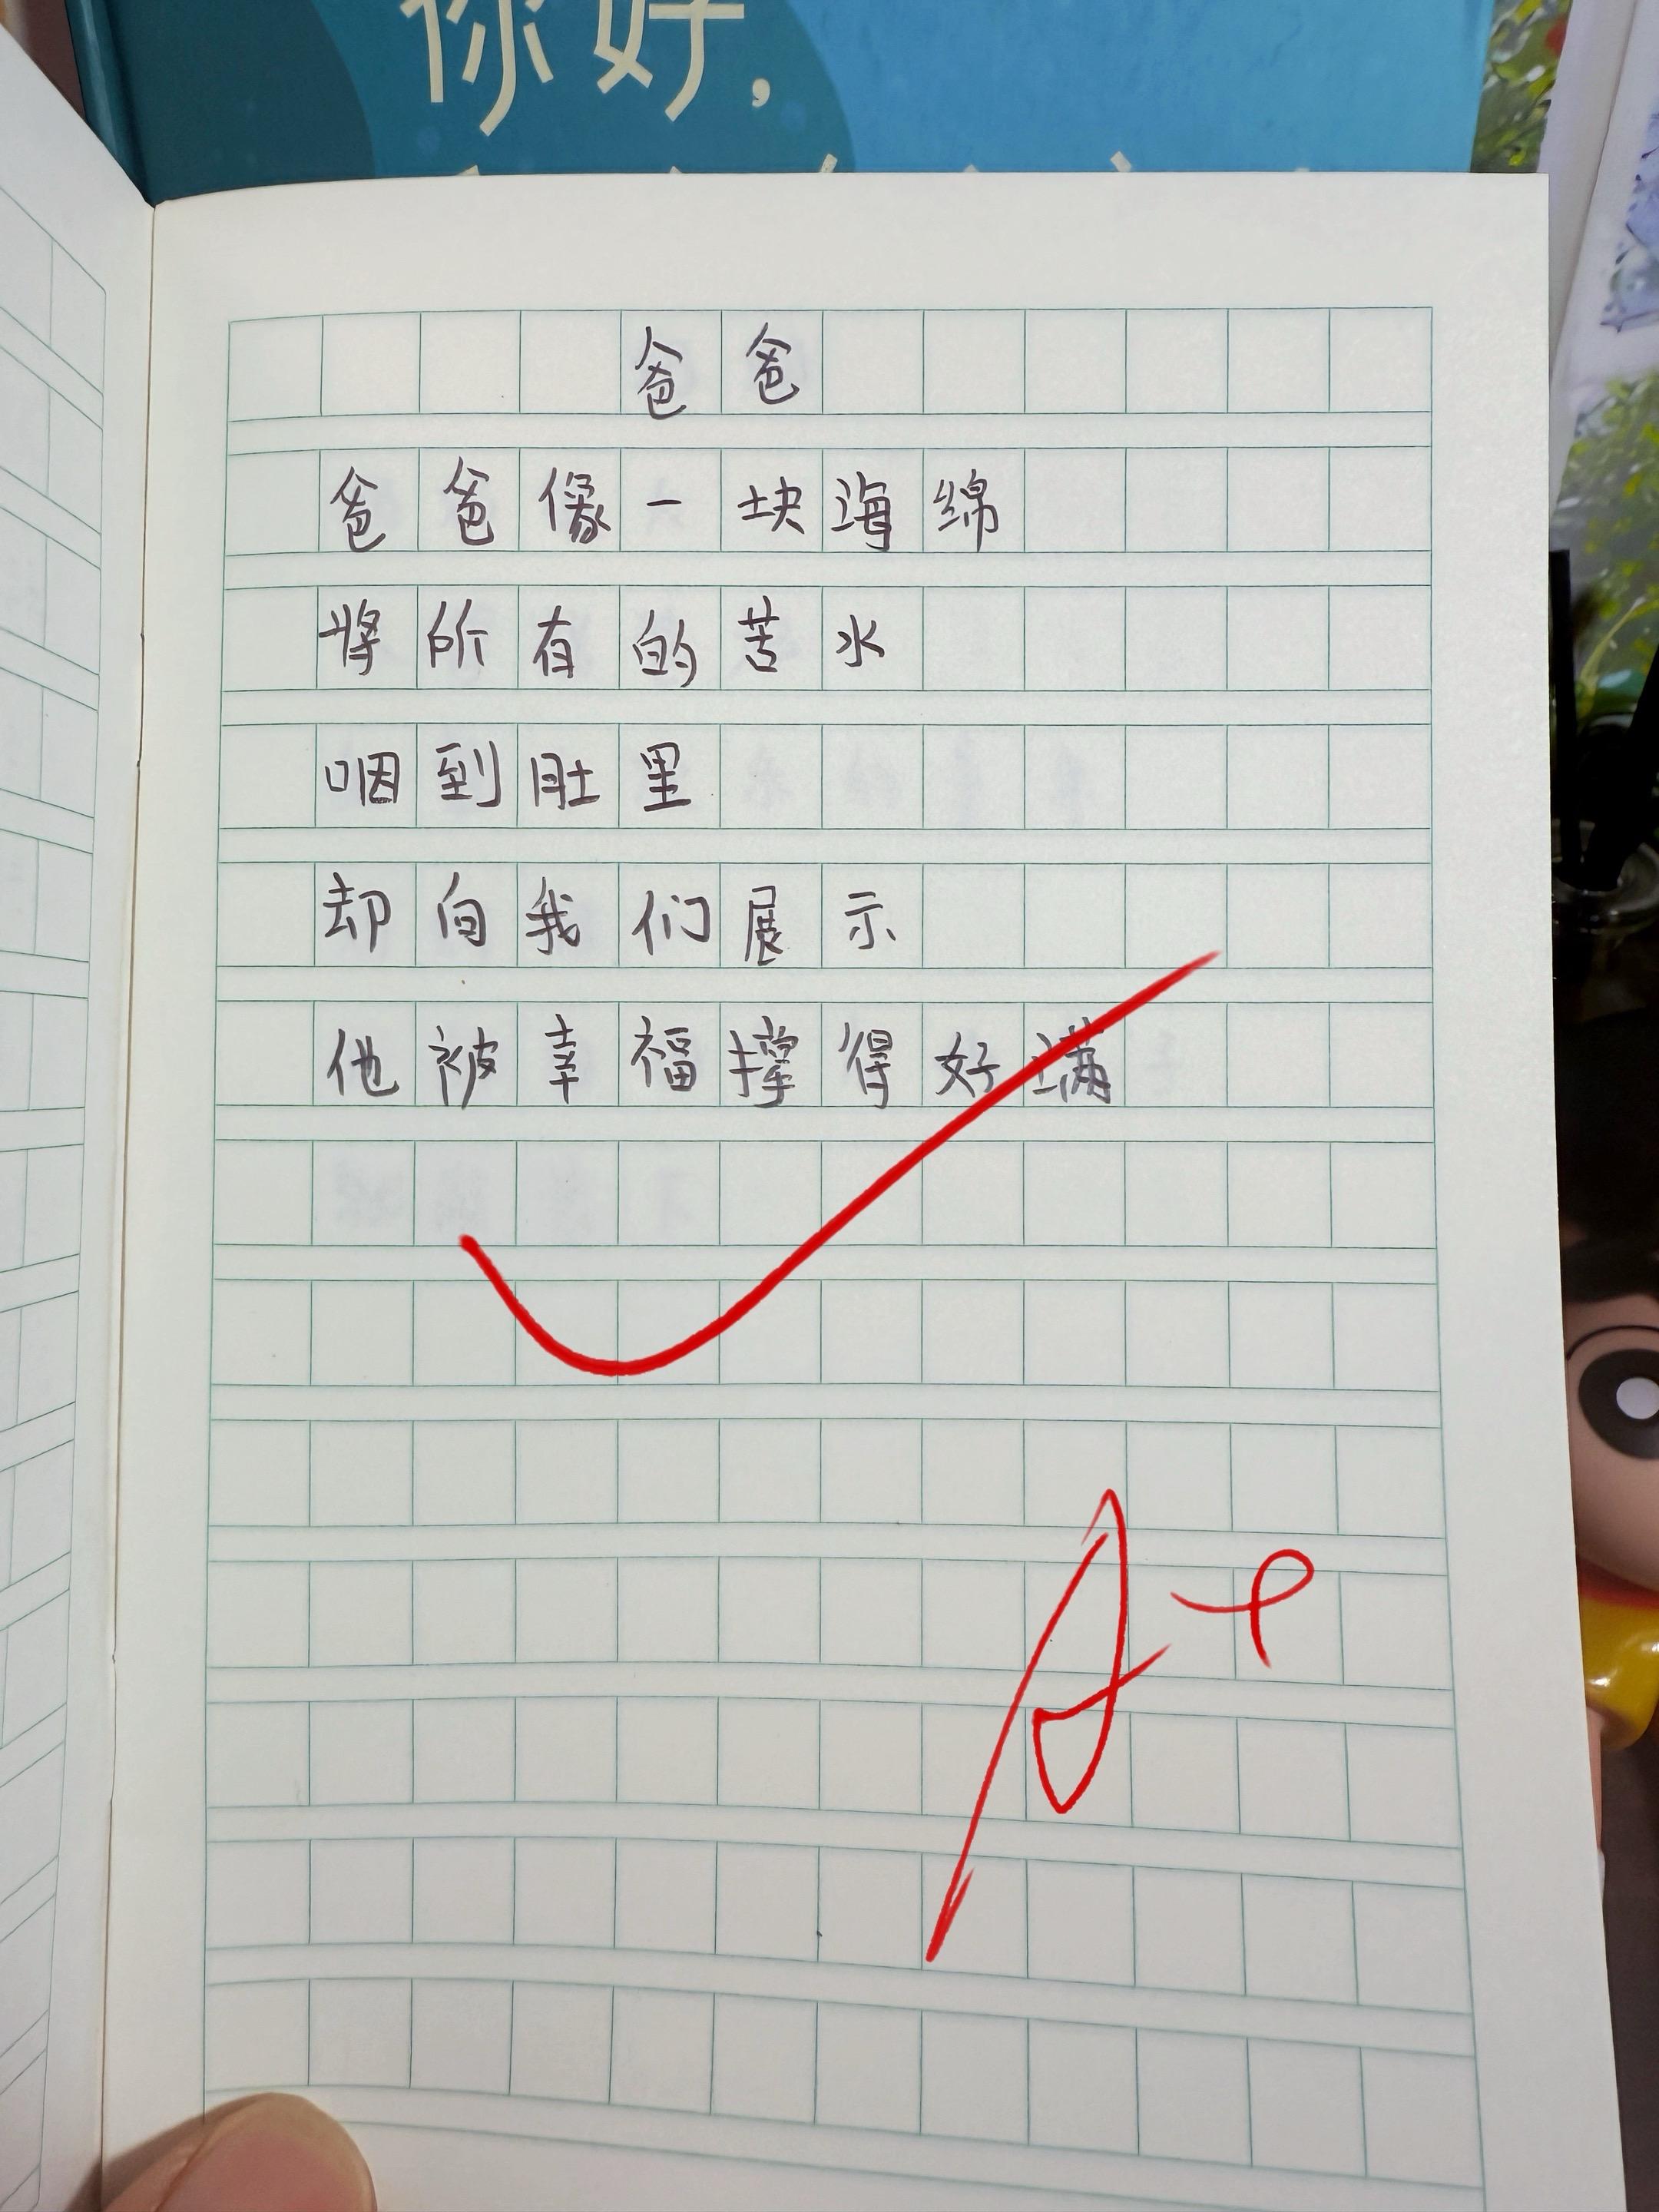 你好,
爸爸
爸爸像一块海绵
将所有的苦水
咽到肚里
却向我们展示
他被幸福撑得好满
A+